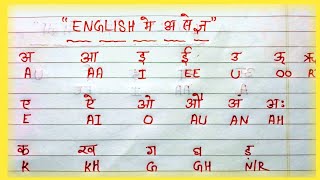 "ENGLISH मे अ से ज्ञ"
अ आ इ ई उ ऊ
A AA I EE U OO
ए ऐ ओ औ अं अः
E AI O AU AN AH
क ख ग घ ड़
K KH G GH N/R